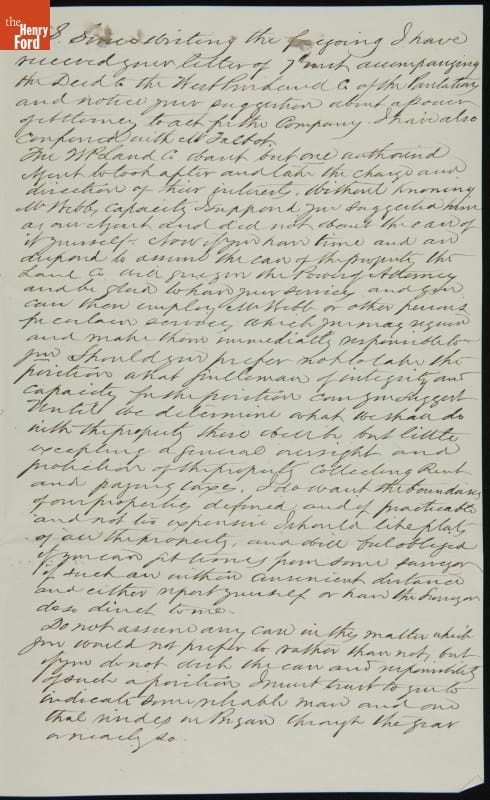 the
Henry
Ford
P.S. Since writing the foregoing I have
received your letter of 7th inst accompanying
the Deed to the West Land Co of the Plantation
and notice your suggestion about a power
of Attorney to act for the Company. I have also
conferred with Mr Talbot.
The Land Co want but one authorized
Agent to look after and take the charge and
direction of their interests. Without knowing
Mr Webbs capacity I supposed you suggested him
as our Agent and did not want the care of
it yourself. Now if you have time and are
disposed to assume the care of the property, the
Land Co will give you the Power of Attorney
and be glad to have your services, and you
can then employ Mr Webb or other persons
for certain services, which you may require
and make them immediately responsible to
you. Should you prefer not to take the
position what gentleman of integrity and
capacity for the position can you suggest
Until we determine what we shall do
with the property there will be but little
excepting a general oversight and
protection of the property, collecting Rent
and paying taxes. I do want the boundaries
of our properties defined, and if practicable
and not too expensive I should like plats
of all the property, and will be obliged
if you can get terms from some surveyor
if such are within convenient distance
and either report yourself or have the Surveyor
do so direct to me.
Do not assume any care in this matter which
you would not prefer to rather than not, but
if you do not wish the care and responsibility
of such a position I must trust to you to
indicate some reliable man and one
that resides in through the year
or nearly so.